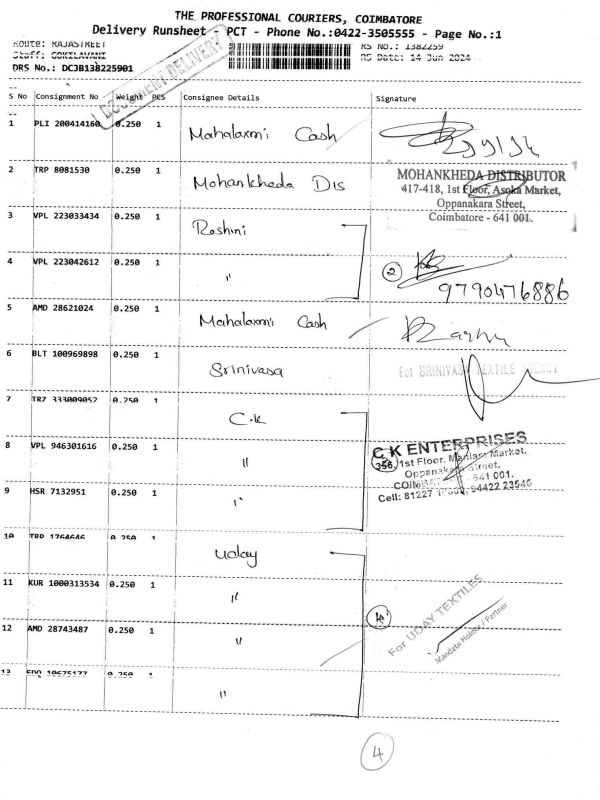 THE PROFESSIONAL COURIERS, COIMBATORE
Delivery Runsheet - PCT - Phone No.:0422-3505555 - Page No.:1
Route: RAJASTREET
RS No.: 1382259
Staff: GOKILAVANI
RS Date: 14 Jun 2024
DRS No.: DCJB138225901
DOCUMENT DELIVERY
S No Consignment No Weight PCS Consignee Details Signature
1 PLI 200414160 0.250 1 Mahalaxmi Cash
2 TRP 8081530 0.250 1 Mohankheda Dis
MOHANKHEDA DISTRIBUTOR
417-418, 1st Floor, Asoka Market,
Oppanakara Street,
Coimbatore - 641 001.
3 VPL 223033434 0.250 1 Roshini
4 VPL 223042612 0.250 1 "
2
9790476886
5 AMD 28621024 0.250 1 Mahalaxmi Cash
6 BLT 100969898 0.250 1 Srinivasa
For SRINIVASA TEXTILE AGENCY
7 TRZ 333009052 0.250 1 C.K
8 VPL 946301616 0.250 1 "
C K ENTERPRISES
356, 1st Floor, Maniam Market,
Oppanakara Street,
COIMBATORE - 641 001.
Cell: 81227 94422 23546
9 HSR 7132951 0.250 1 "
10 TRP 1764646 0.250 1 Uday
11 KUR 1000313534 0.250 1 "
For UDAY TEXTILES
Mandate Holder / Partner
12 AMD 28743487 0.250 1 "
13 10675177 0.250 1 "
4